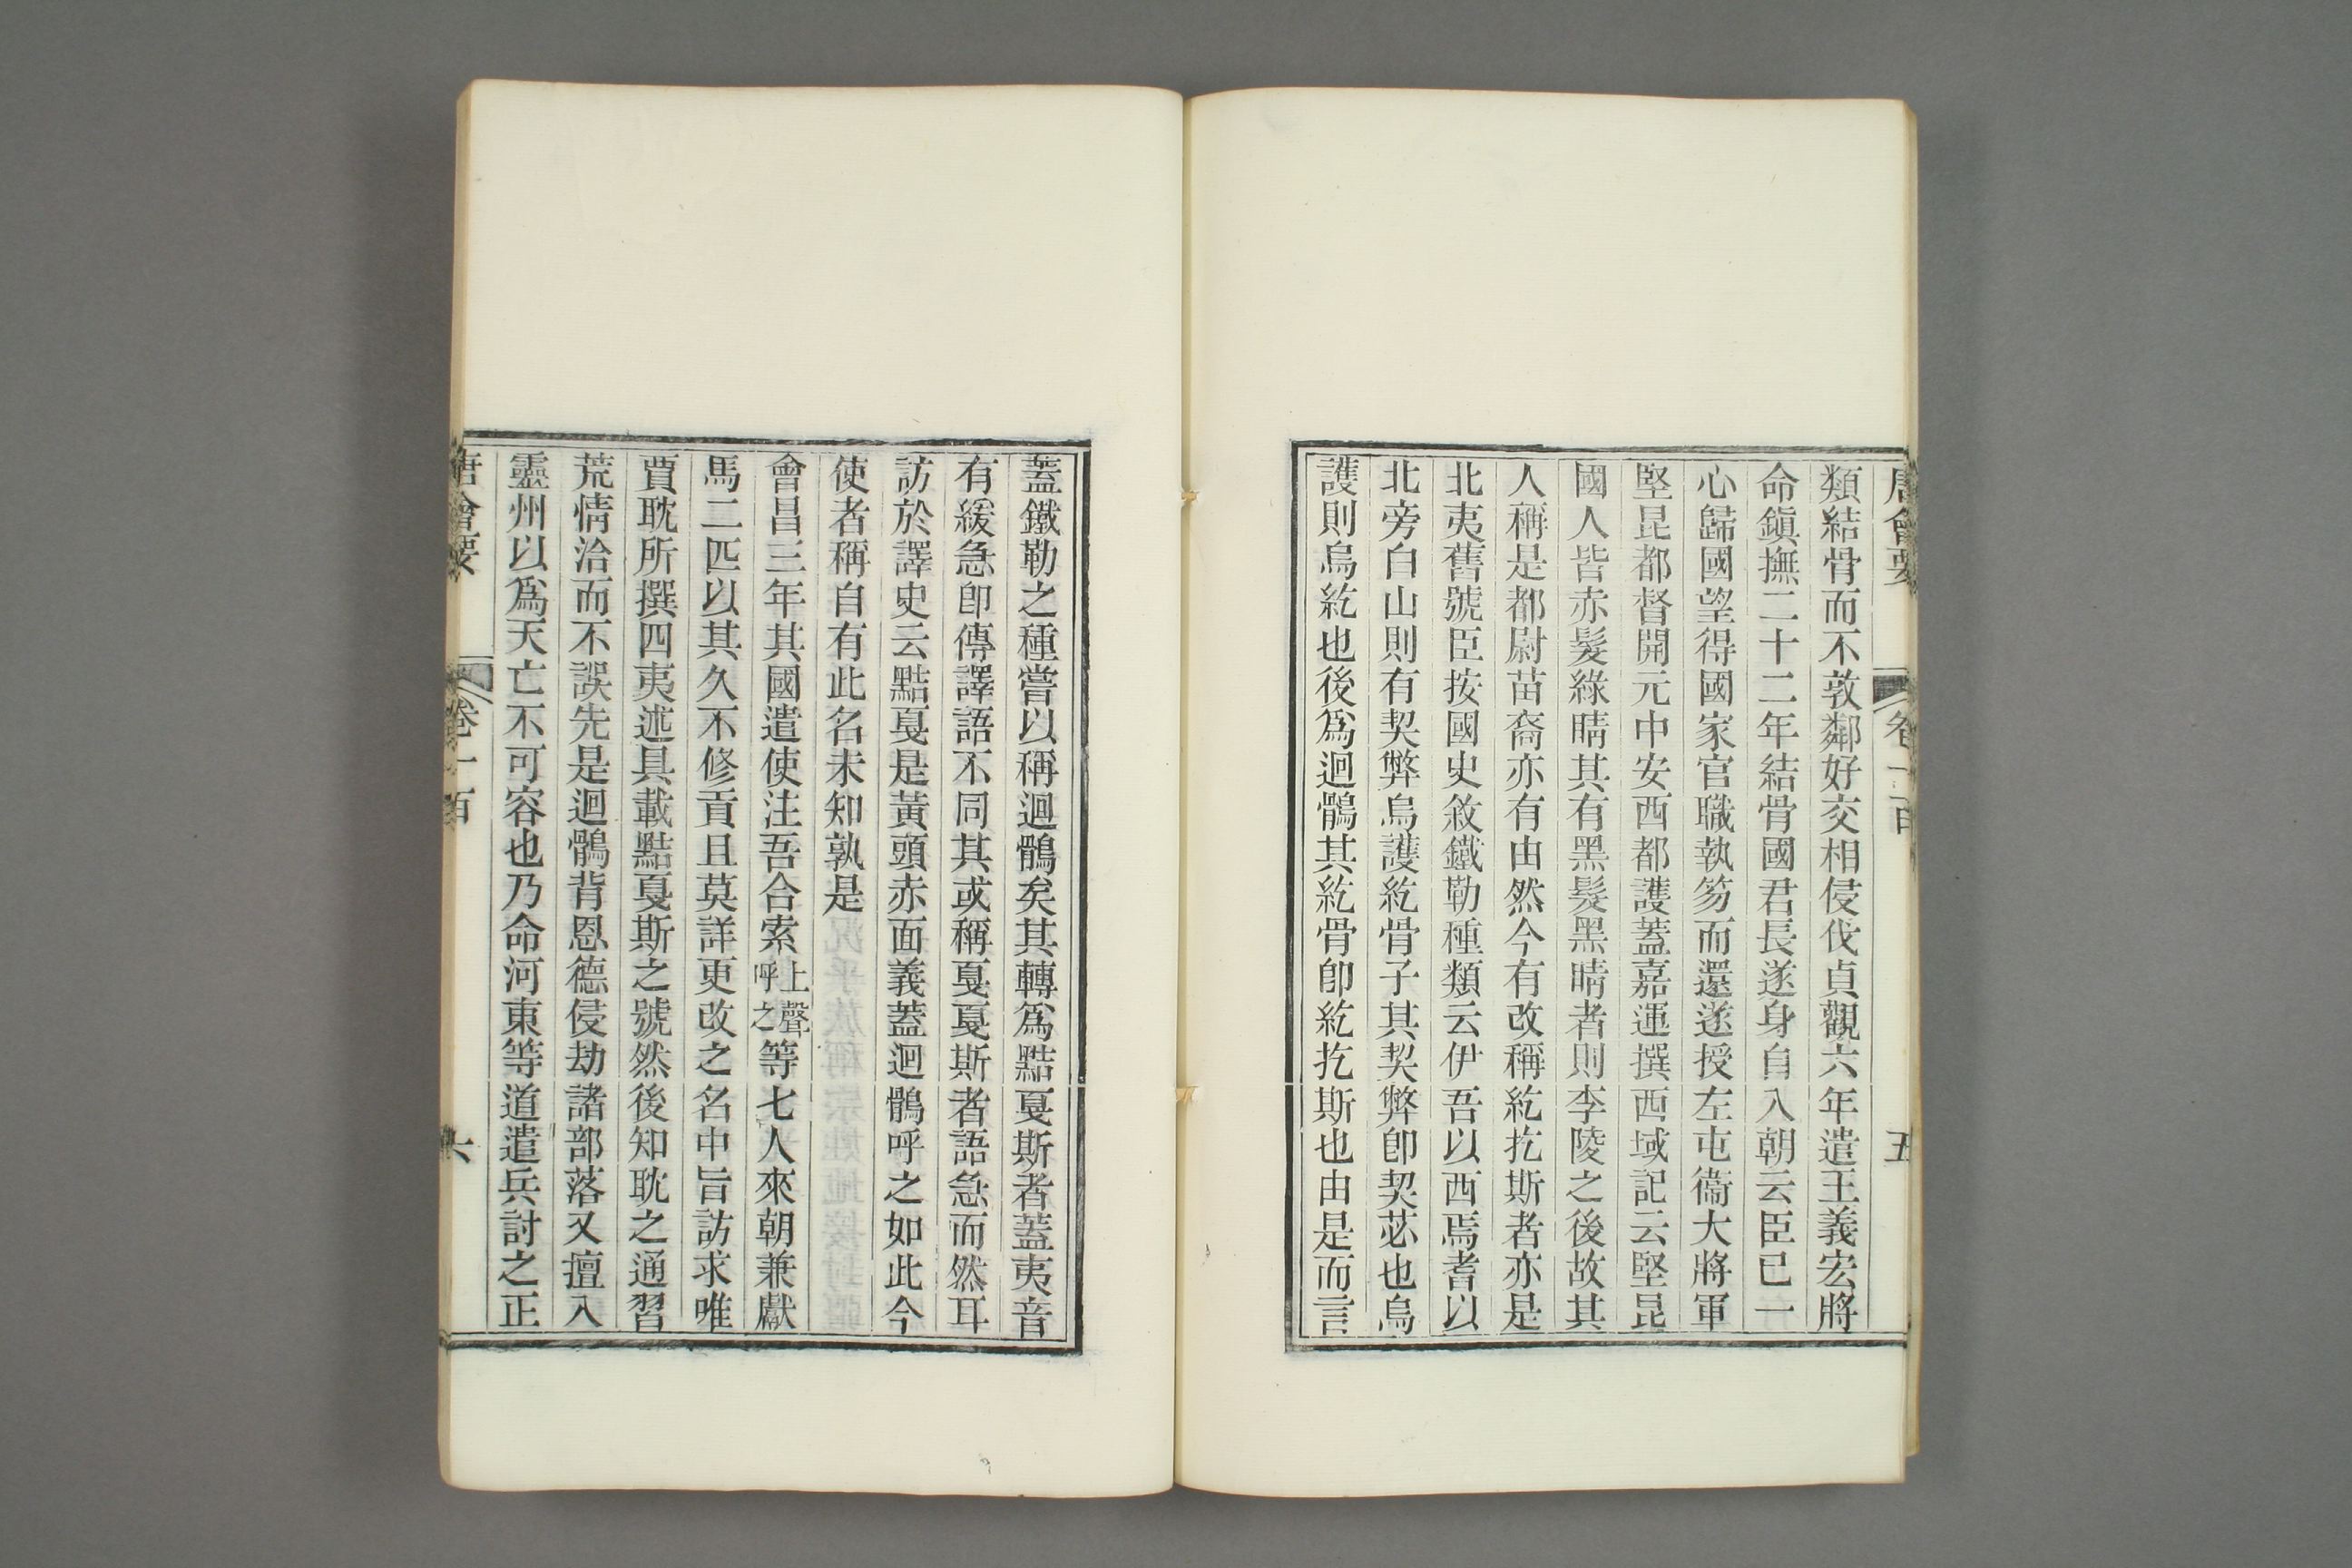 唐會要 卷一百 五
類結骨而不敦鄰好交相侵伐貞觀六年遣王義宏將
命鎭撫二十二年結骨國君長遂身自入朝云臣已一
心歸國望得國家官職執笏而還遂授左屯衞大將軍
堅昆都督開元中安西都護蓋嘉運撰西域記云堅昆
國人皆赤髮綠睛其有黑髮黑睛者則李陵之後故其
人稱是都尉苗裔亦有由然今有改稱紇扢斯者亦是
北夷舊號臣按國史敘鐵勒種類云伊吾以西焉耆以
北旁白山則有契弊烏護紇骨子其契弊卽契苾也烏
護則烏紇也後爲迴鶻其紇骨卽紇扢斯也由是而言
蓋鐵勒之種嘗以稱迴鶻矣其轉爲黠戛斯者蓋夷音
有緩急卽傳譯語不同其或稱戛戛斯者語急而然耳
訪於譯史云黠戛是黃頭赤面義蓋迴鶻呼之如此今
使者稱自有此名未知孰是
會昌三年其國遣使注吾合索上聲呼之等七人來朝兼獻
馬二匹以其久不修貢且莫詳更改之名中旨訪求唯
賈耽所撰四夷述具載黠戛斯之號然後知耽之通習
荒情洽而不誤先是迴鶻背恩德侵劫諸部落又擅入
靈州以爲天亡不可容也乃命河東等道遣兵討之正
唐會要 卷一百 六